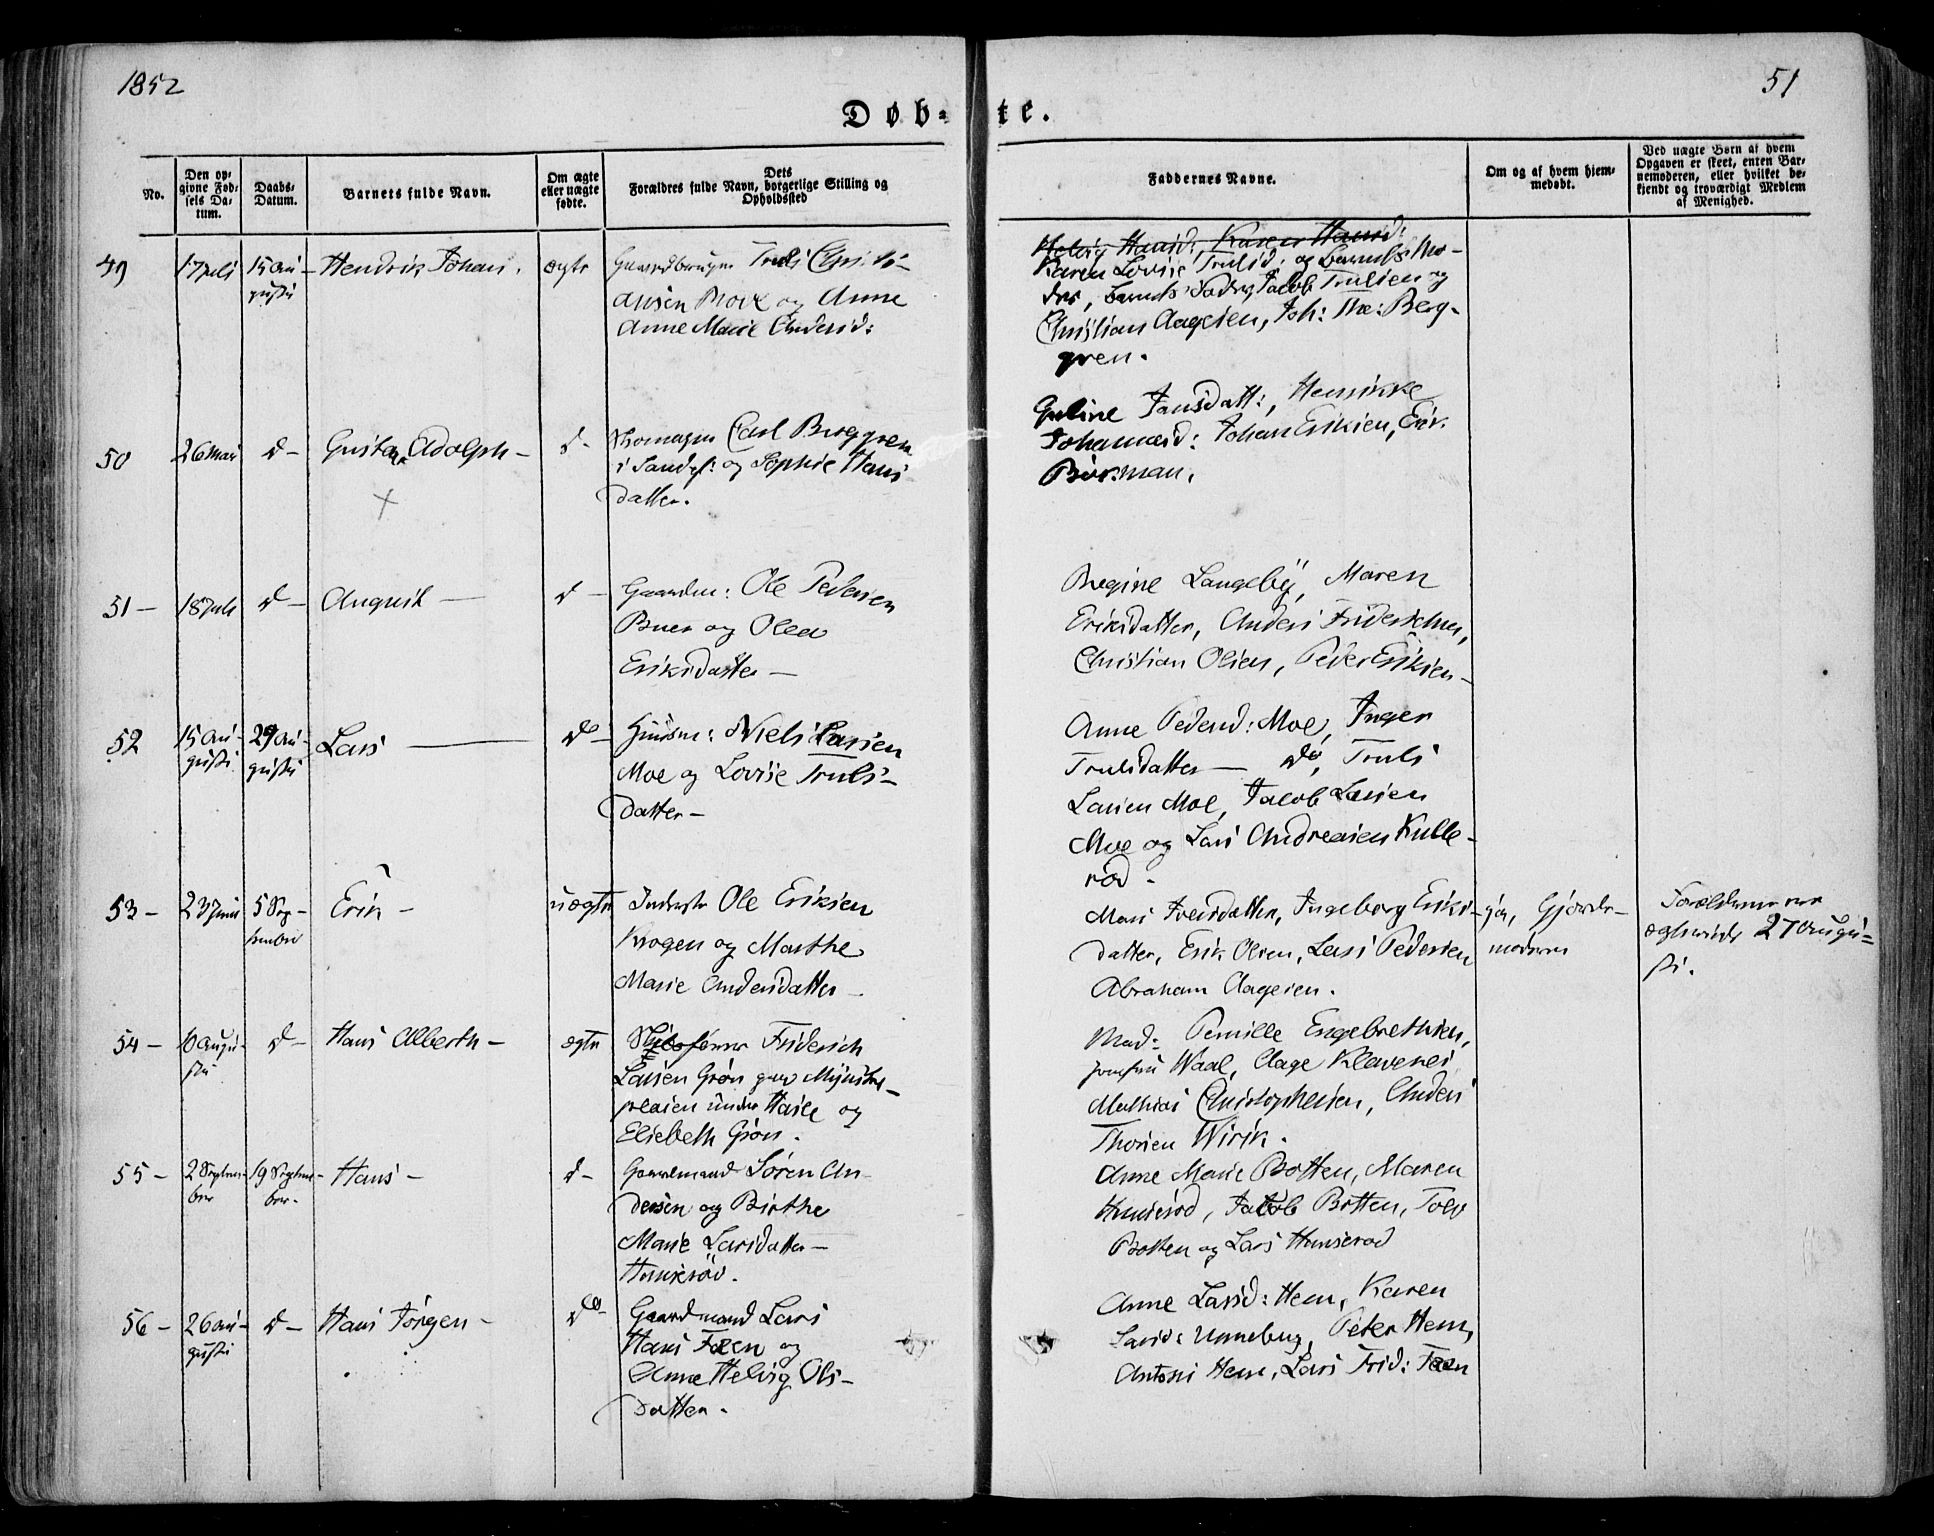 1852
51
Døb- te.
No.
Den opgivne Fødsels Datum.
Daabs-Datum.
Barnets fulde Navn.
Om ægte eller uægte fødte.
Dets Forældres fulde Navn, borgerlige Stilling og Opholdssted
Faddernes Navne.
Om og af hvem hjemmedøbt.
Ved uægte Børn af hvem Opgaven er skeet, enten Barnemoderen, eller hvilket bekjendt og troværdigt Medlem af Menighed.
49 17 Juli 15 Au-
gusti
Hendrik Johan. ægte
Gaardbruger Truls Christi-
ansen Bove og Anne
Anne Marie Andersd:
Helvig Hansd:, Karen Hansd:
Karen Lovise Trulsd: og Barnets Mo-
der, Barnets Fader, Jacob Trulsen og
Christian Aagesen, Joh: The: Berg-
gren.
50 26 Mai d- Gustav Adolph- d-
Skomager Carl Berggren
i Sandef: og Sophie Hans
datter.
Guline Jansdatt:, Henrikke
Johannesd: Johan Eriksen, Erik
Börkman.
51 - 18 Juli d- August - d-
Gaardm: Ole Pedersen
Buer og Olea
Eriksdatter -
Regine Langeby, Maren
Eriksdatter, Anders Friderichsen,
Christian Olsen, Peder Eriksen -
52 15 Au-
gusti
29 Au-
gusti
Lars - do-
Huusm: Niels Larsen
Moe og Lovise Truls-
datter -
Anne Pedersd: Moe, Inger
Trulsdatter - do, Truls
Larsen Moe, Jacob Larsen
Moe og Lars Andreasen Kulle-
rød -
53 - 23 Juni 5 Sep-
tember
Erik - uægte
Inderste Ole Eriksen
Krogen og Marthe
Marie Andersdatter -
Mari Iversdatter, Ingeborg Eriks-
datter, Erik Olsen, Lars Pedersen
Abraham Aagesen.
ja, Gjorde-
moderen
Forældrene ere
ægteviede 27 Augu=
sti.
54 - 10 Augu-
sti
d- Hans Alberth - ægte
Skibsfører Friderich
Larsen Grøn paa Mynster-
pladsen under Hasle og
Elisebeth Grøn.
Mad: Pernille Engebrethsen,
jomfru Waal, Aage Klavenes
Mathias Christophersen, Anders
Thorsen Wirik.
55 - 2 Septem-
ber
19 Septem-
ber.
Hans - d-
Gaardmand Søren An-
dersen og Birthe
Marie Larsdatter -
Hunsrød.
Anne Marie Botten, Maren
Hunsrød, Jacob Botten, Tolv
Botten og Lars Hunserød
56 - 26 Au-
gusti
d- Hans Jørgen - do-
Gaardmand Lars
Hans Fæen og
Anne Helvig Ols-
datter.
Anne Larsd: Hem, Karen
Larsd: Unneberg, Peter Hem,
Antoni Hem, Lars Frid: Fæen